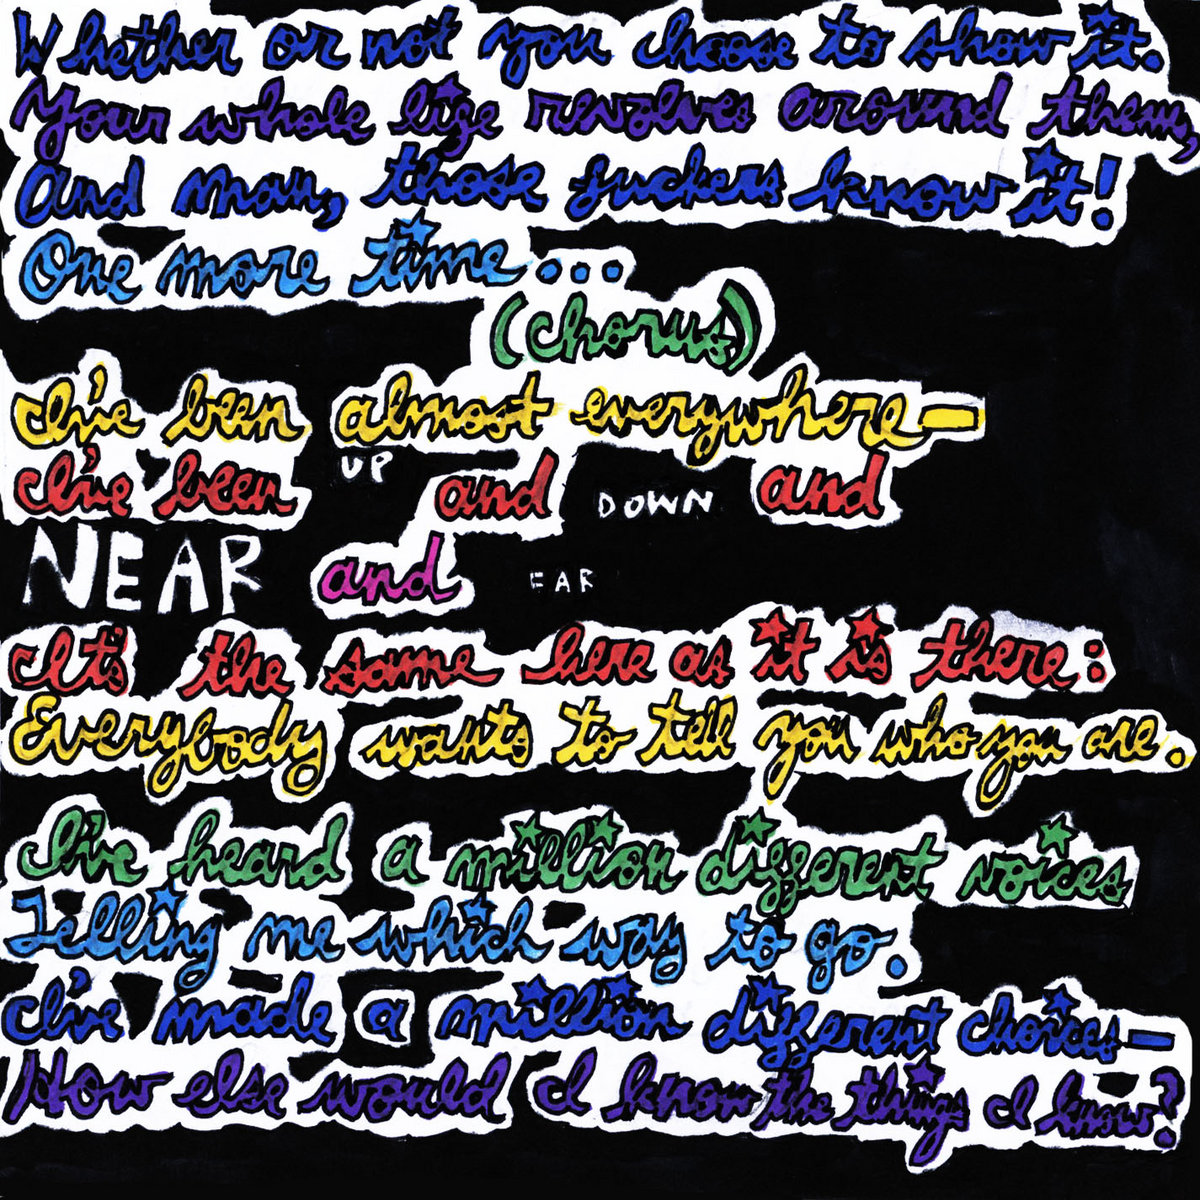 Whether or not you choose to show it.
Your whole life revolves around them,
And man, those suckers know it!
One more time...
(chorus)
I've been almost everywhere—
I've been UP and DOWN and
NEAR and FAR
It's the same here as it is there:
Everybody wants to tell you who you are.
I've heard a million different voices
Telling me which way to go.
I've made a million different choices—
How else would I know the things I know?